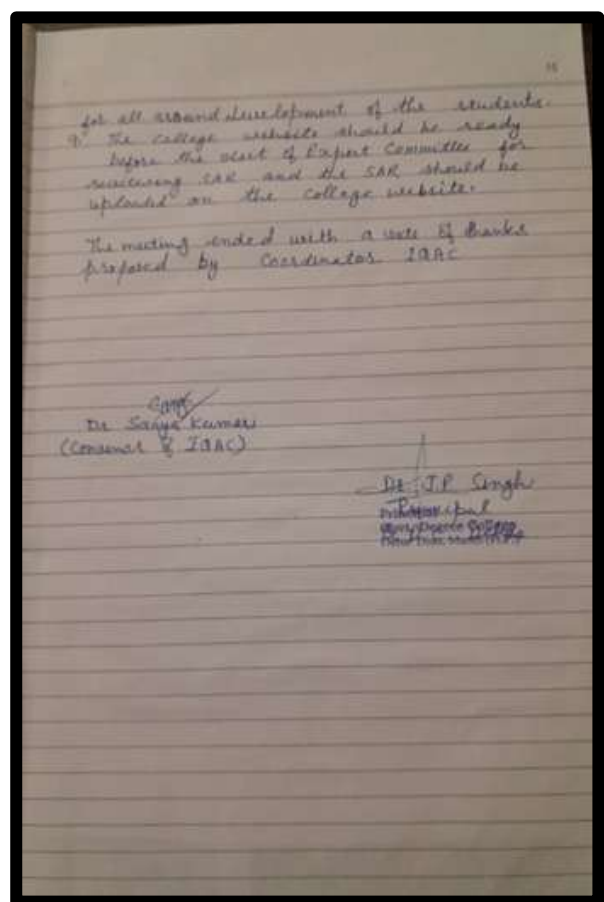 for all around development of the students.
9. The college website should be ready
before the visit of Expert Committee for
reviewing SAR and the SAR should be
uploaded on the college website.
The meeting ended with a vote of thanks
proposed by Coordinator IQAC
Dr Sanjya Kumar
(Convenor of IQAC)
Dr J.P. Singh
Principal